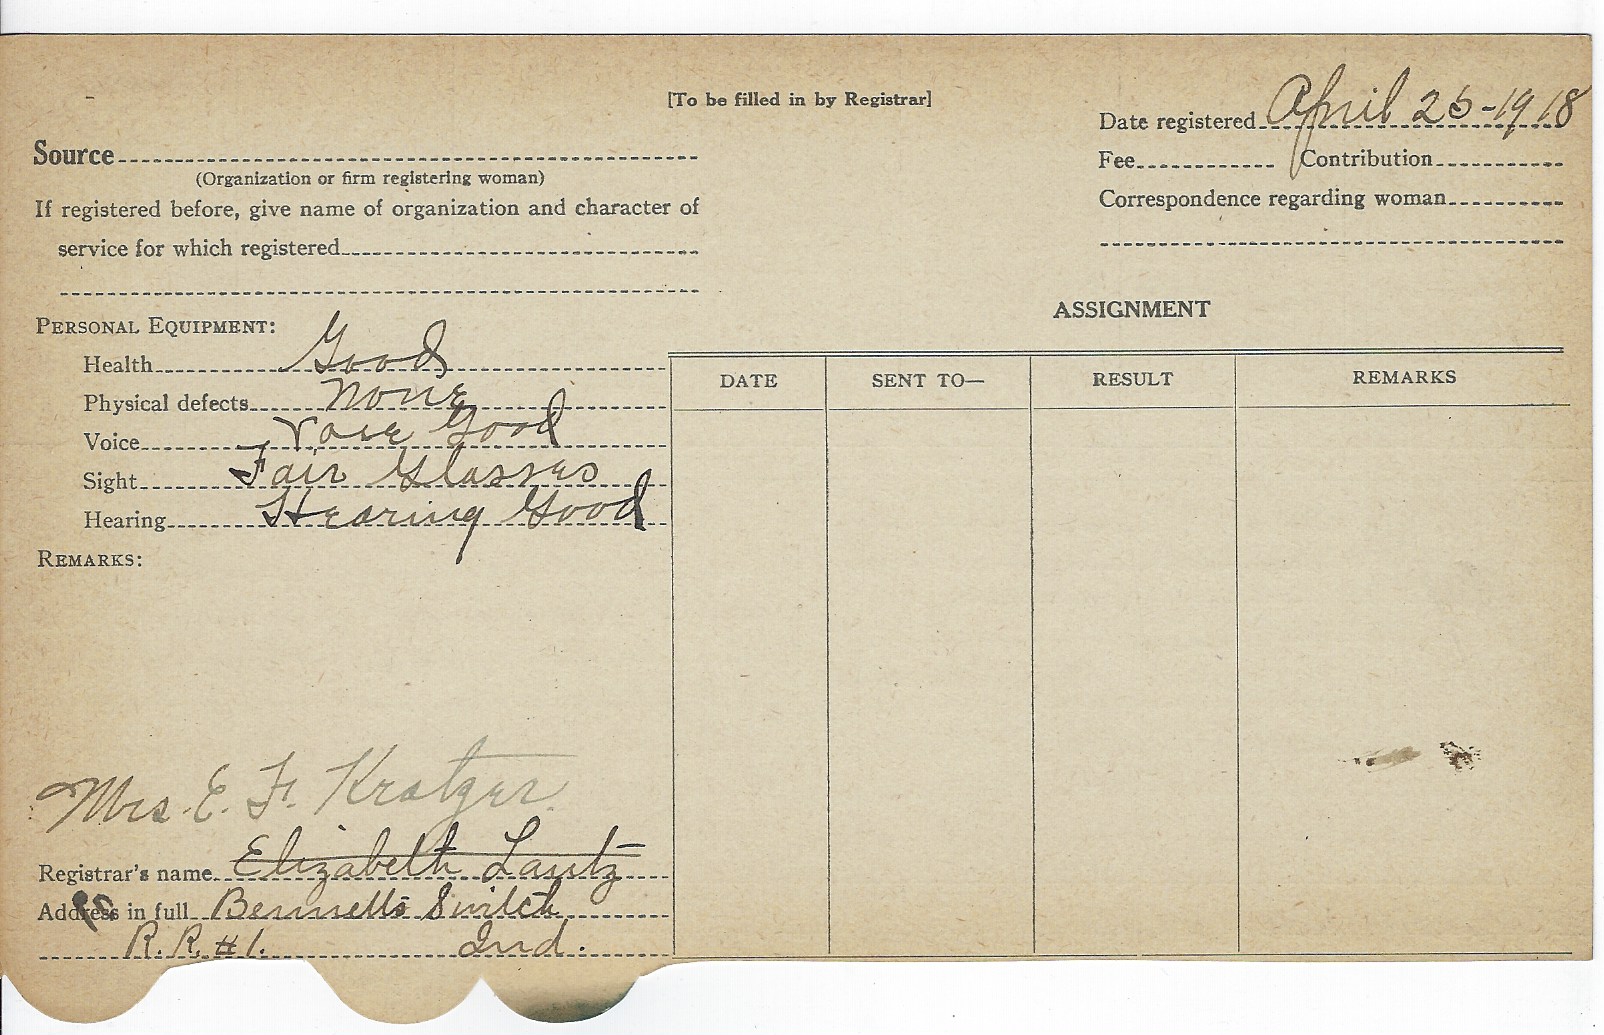 [To be filled in by Registrar]
Date registered April 25-1918
Source
(Organization or firm registering woman)
Fee Contribution
If registered before, give name of organization and character of
service for which registered
Correspondence regarding woman
ASSIGNMENT
PERSONAL EQUIPMENT:
Health Good
Physical defects None
Voice Voice Good
Sight Fair Glasses
Hearing Hearing Good
DATE SENT TO— RESULT REMARKS
REMARKS:
Mrs. E. F. Kratzer.
Registrar's name Elizabeth Lantz
Address in full Bennetts Switch
R. R. #1. Ind.